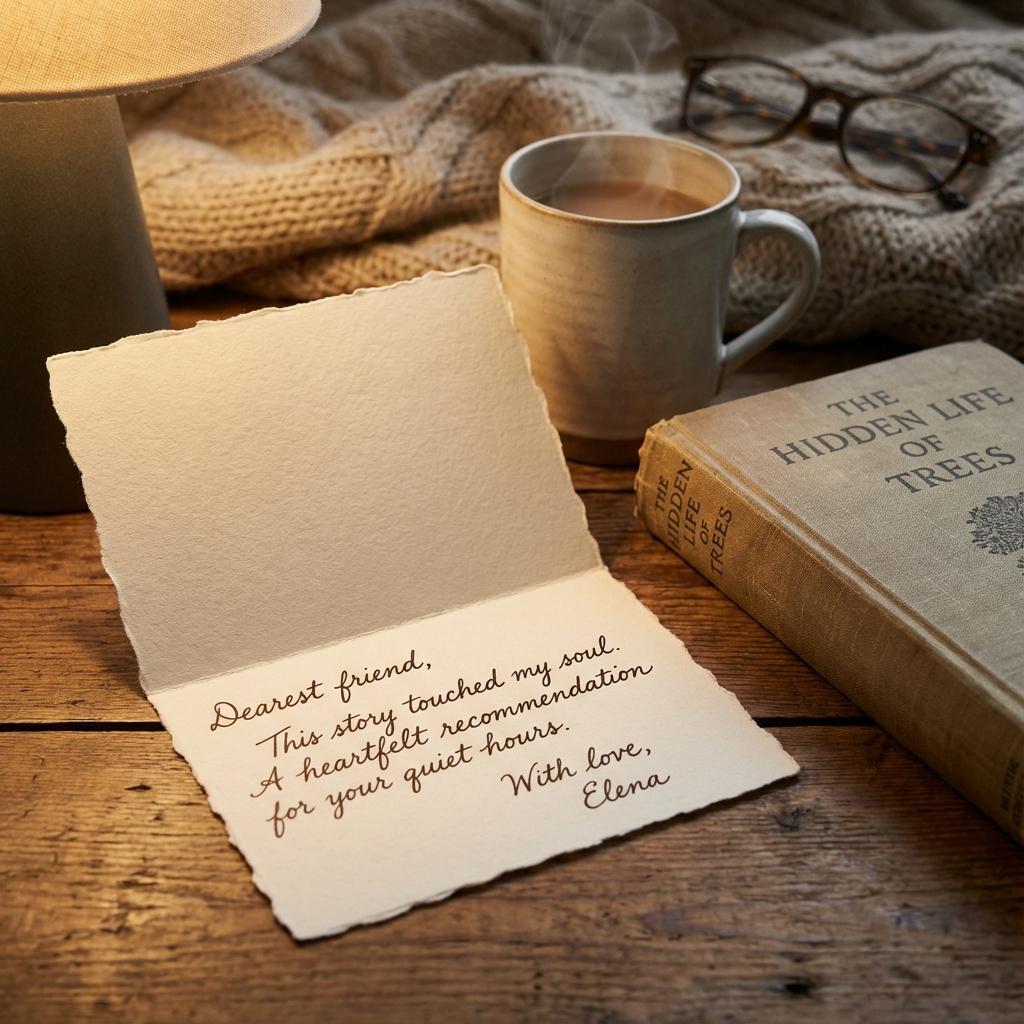 Dearest friend,
This story touched my soul.
A heartfelt recommendation
for your quiet hours.
With love,
Elena
THE
HIDDEN LIFE
OF
TREES
THE
HIDDEN
LIFE
OF
TREES